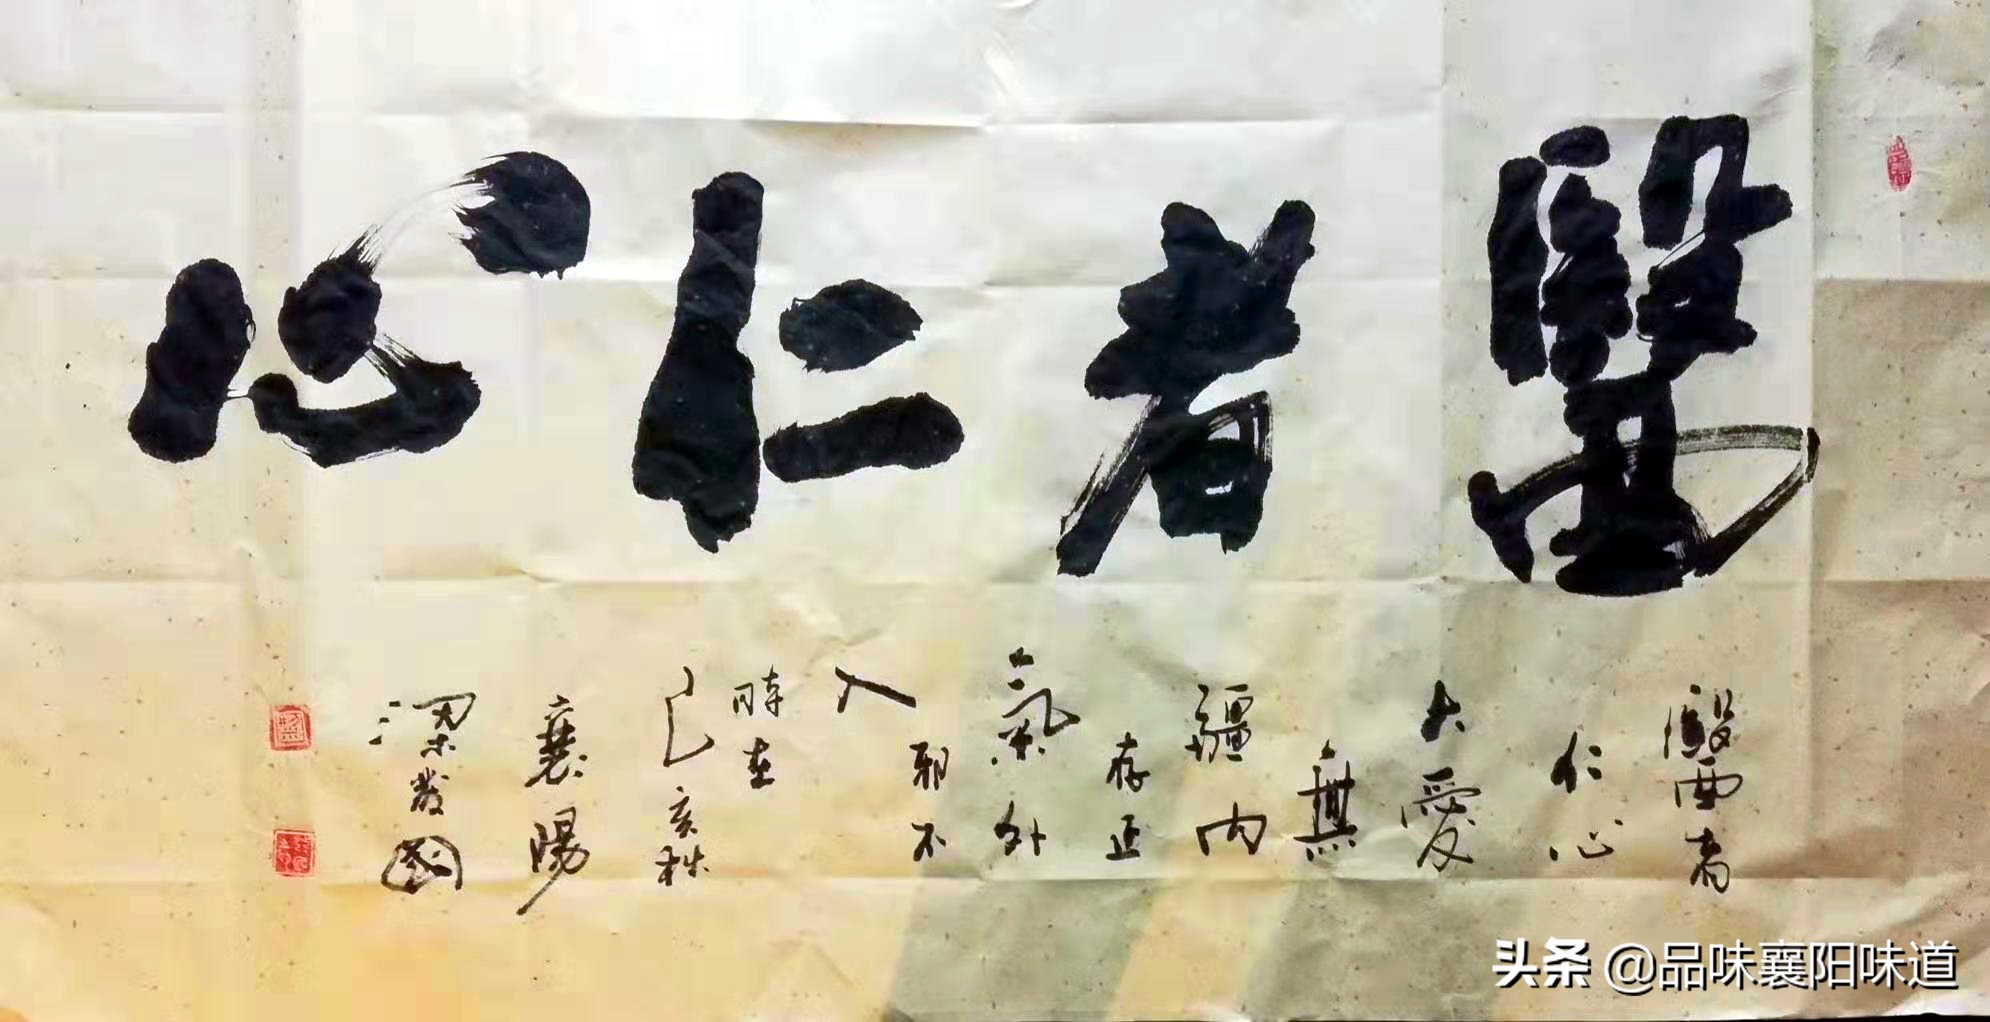 醫者仁心
醫者
仁心
大愛
無
疆内
存正
氣外
邪不
入
時在
己亥秋
襄陽
梁發國
头条 @品味襄阳味道